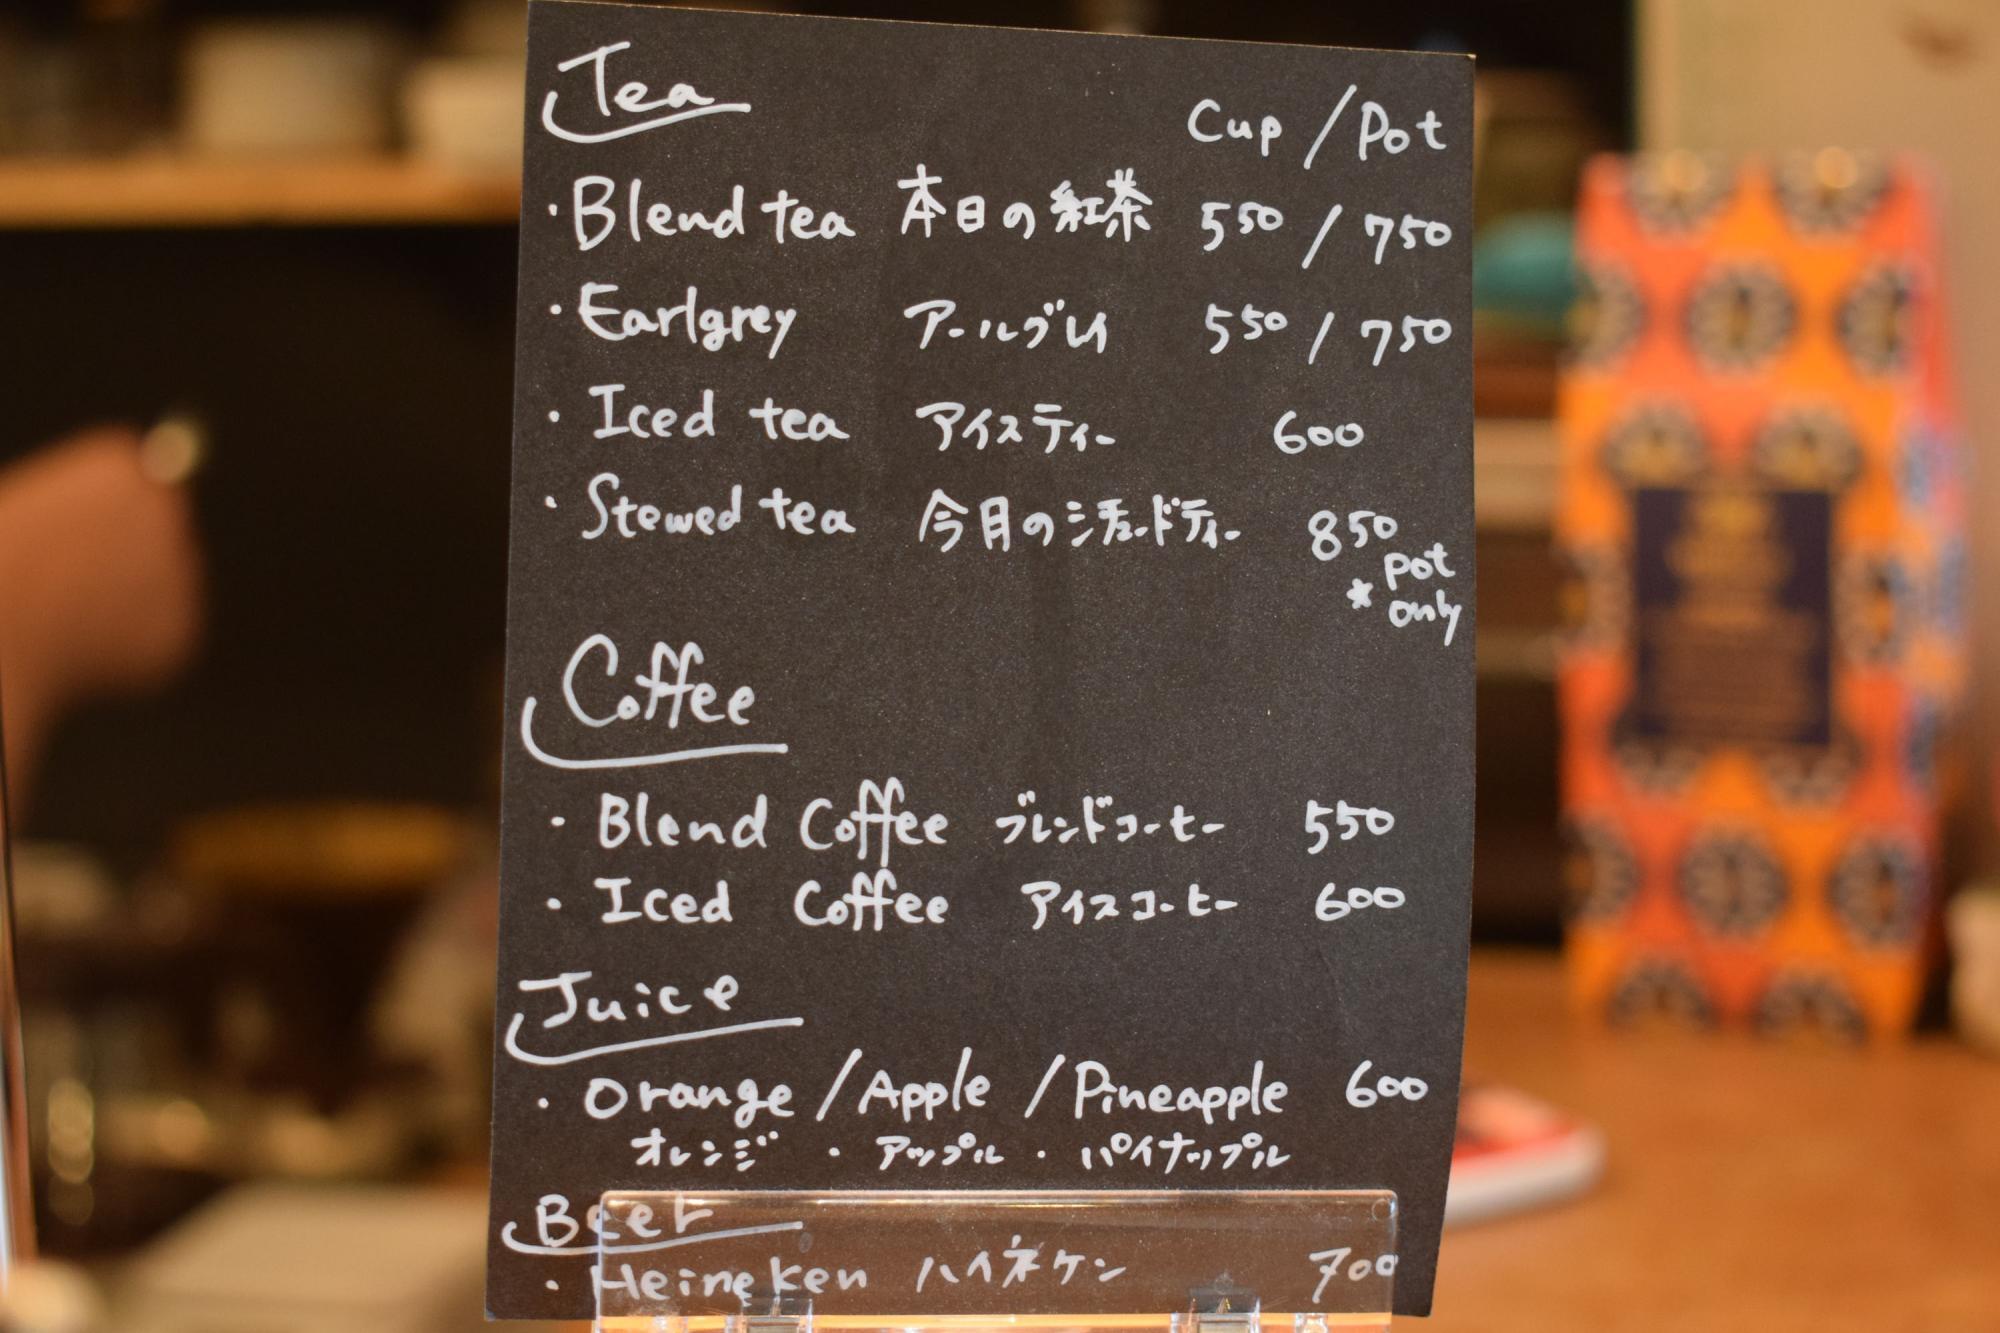 Tea
Cup / Pot
・Blend tea 本日の紅茶 550 / 750
・Earlgrey アールグレイ 550 / 750
・Iced tea アイスティー 600
・Stewed tea 今月のシチュードティー 850
* pot only
Coffee
・Blend Coffee ブレンドコーヒー 550
・Iced Coffee アイスコーヒー 600
Juice
・Orange / Apple / Pineapple 600
オレンジ ・ アップル ・ パイナップル
Beer
・Heineken ハイネケン 700